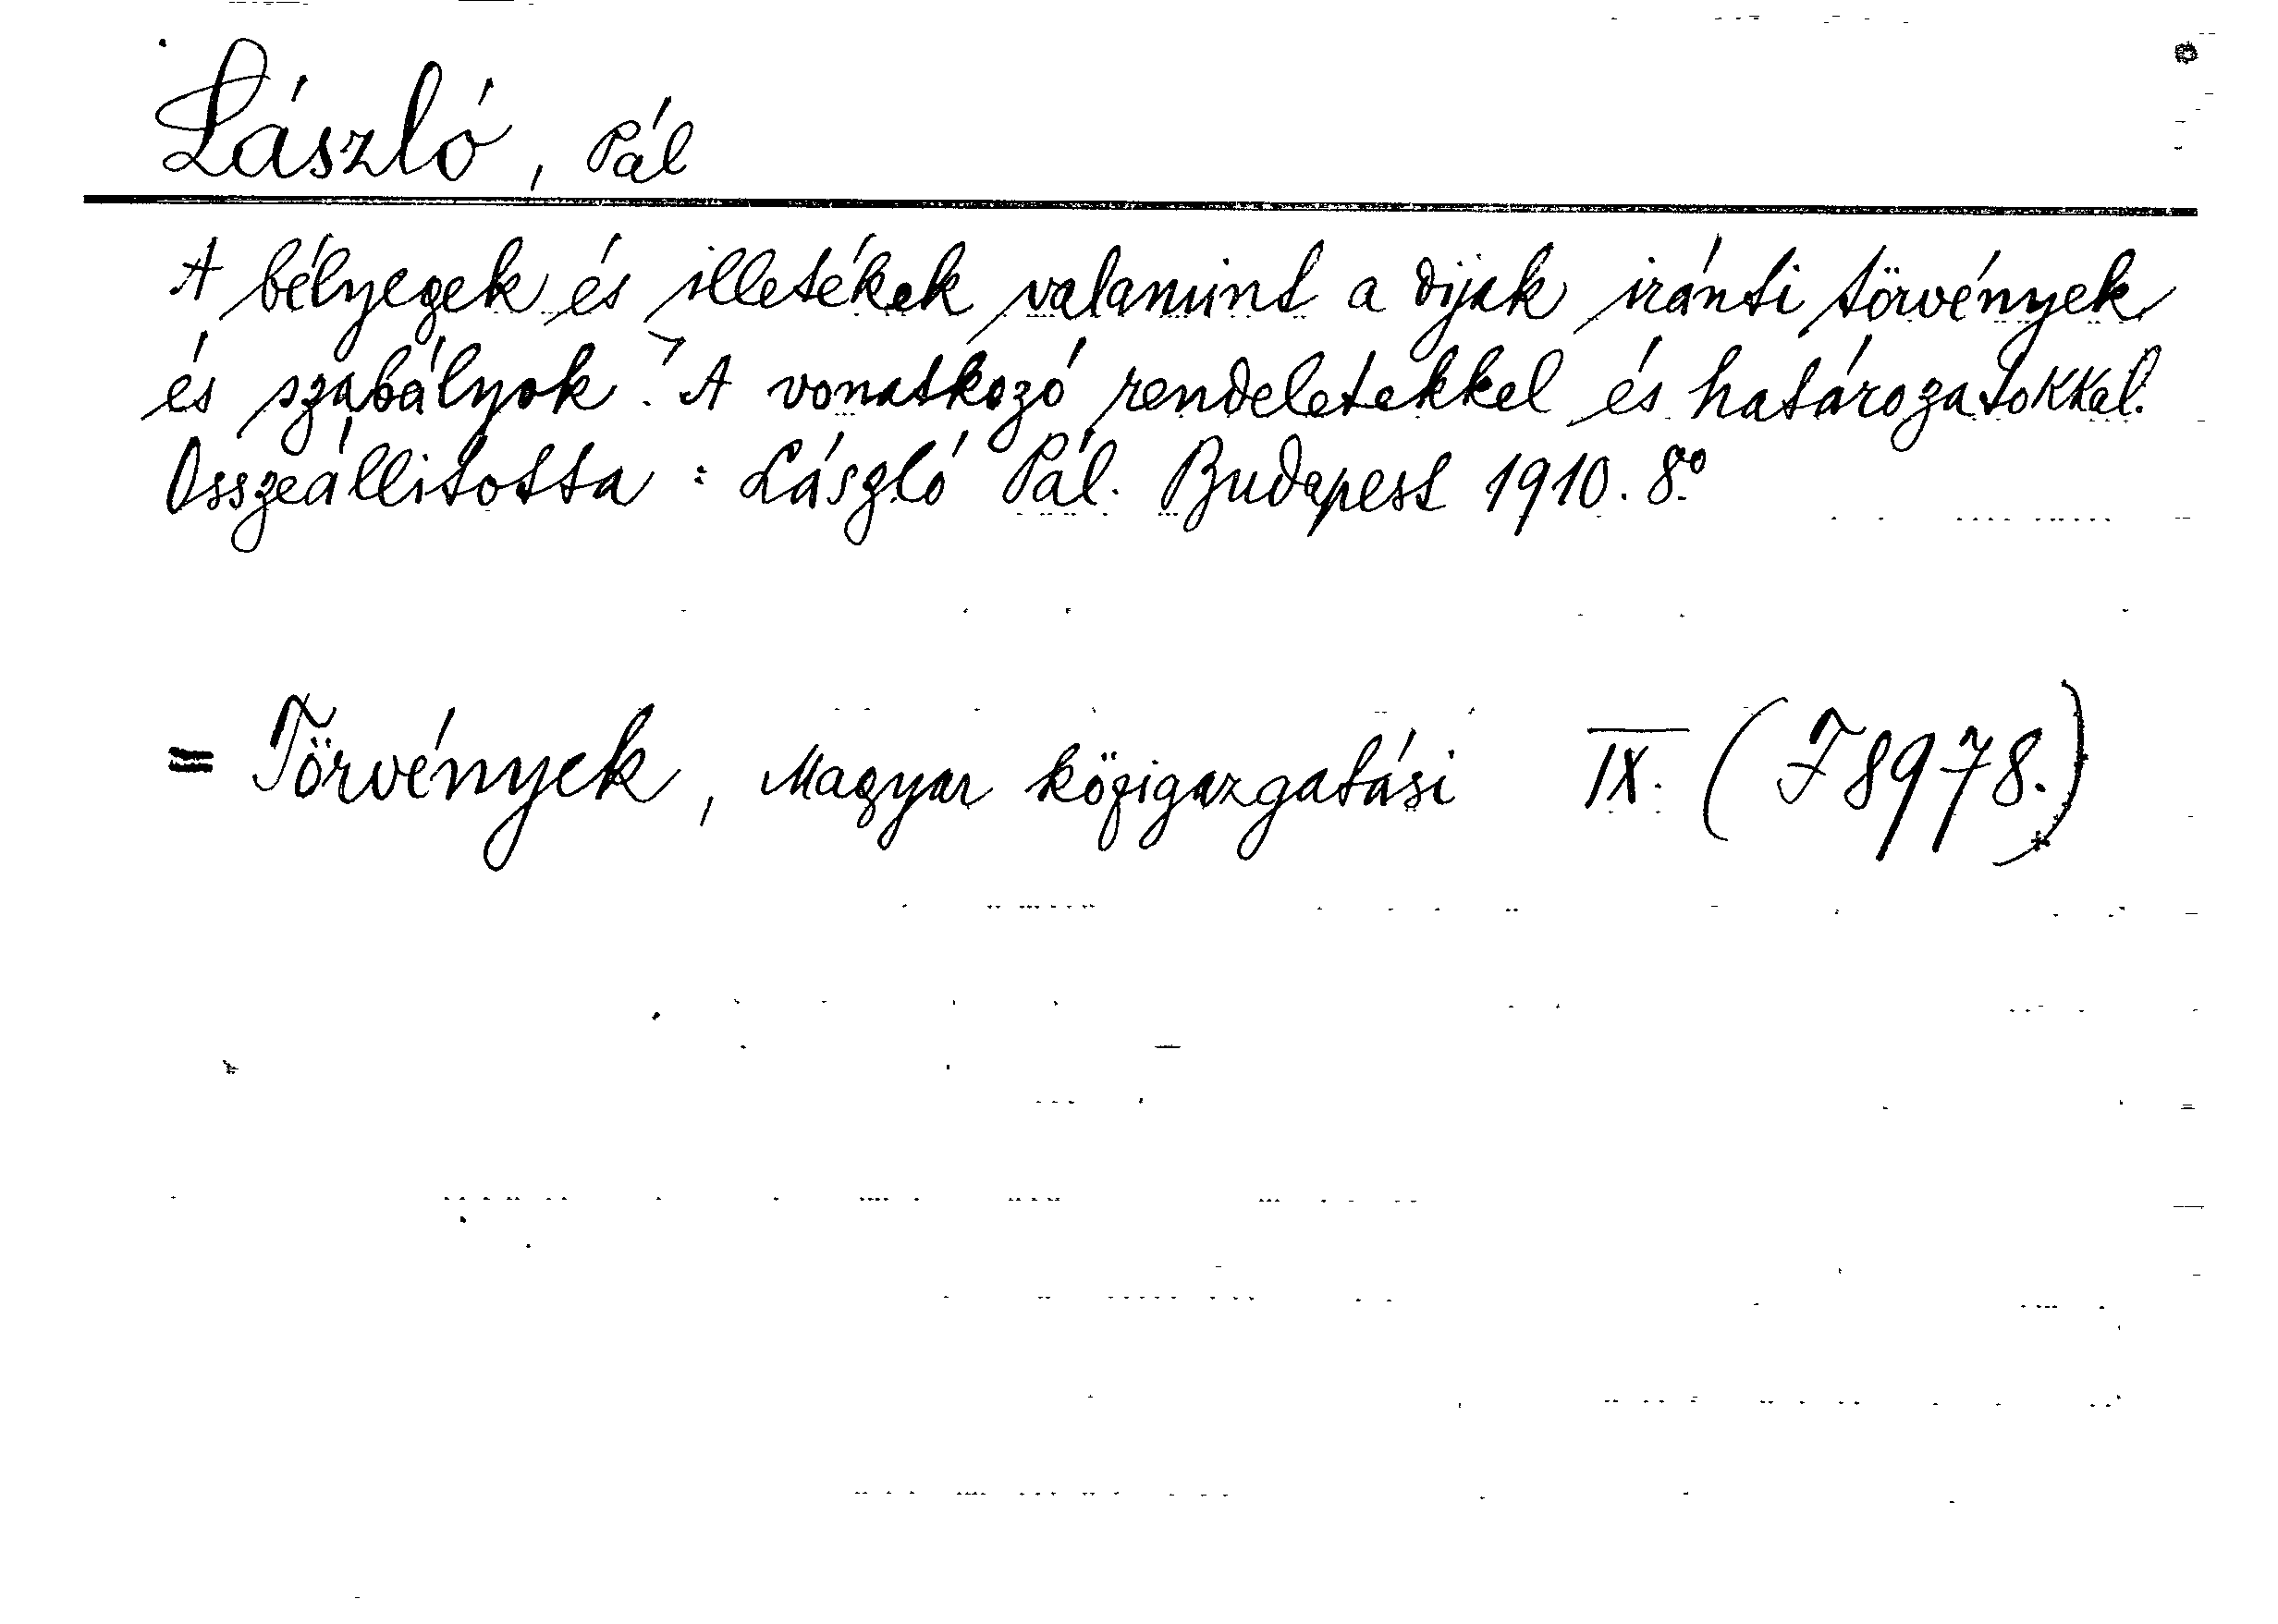 László, Pál
A bélyegek és illetékek valamint a dijak iránti törvények
és szabályok. A vonatkozó rendeletekkel és határozatokkal.
Összeállitotta : László Pál. Budapest 1910. 8°
= Törvények, Magyar közigazgatási IX. (I 8978.)